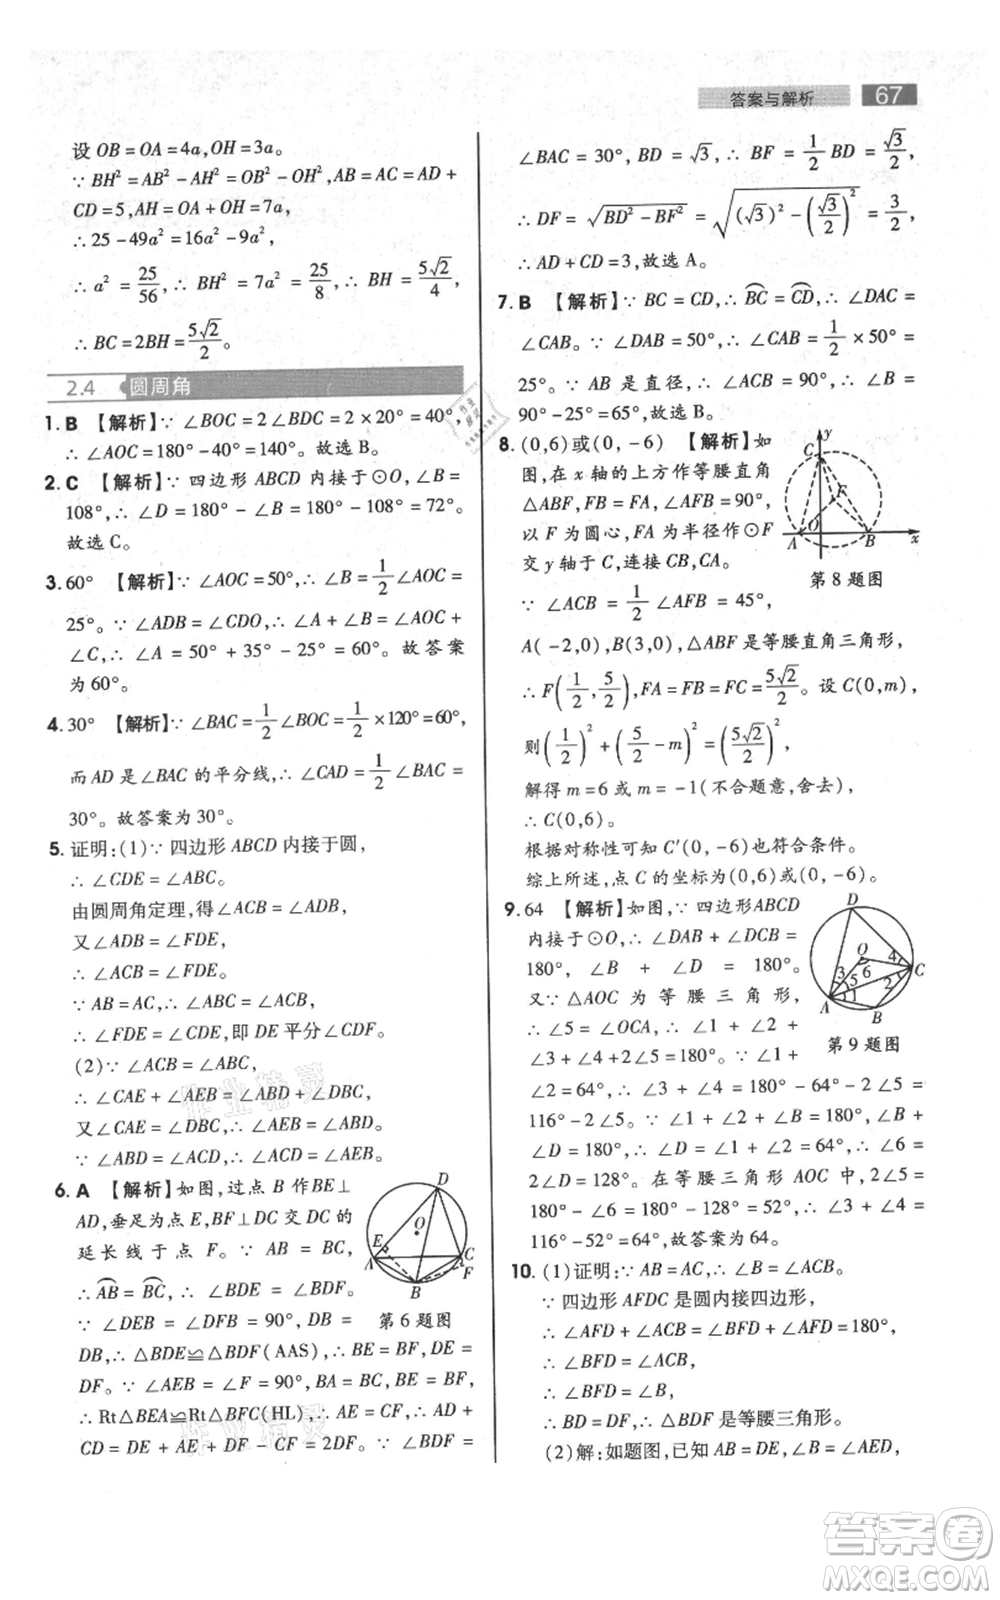 答案与解析 67
设 OB = OA = 4a, OH = 3a。
∵ BH² = AB² - AH² = OB² - OH², AB = AC = AD +
CD = 5, AH = OA + OH = 7a,
∴ 25 - 49a² = 16a² - 9a²,
∴ a² = 25/56, ∴ BH² = 7a² = 25/8, ∴ BH = 5√2/4,
∴ BC = 2BH = 5√2/2。
2.4 圆周角
1. B 【解析】∵ ∠BOC = 2∠BDC = 2 × 20° = 40°,
∴ ∠AOC = 180° - 40° = 140°。故选 B。
2. C 【解析】∵ 四边形 ABCD 内接于⊙O, ∠B =
108°, ∴ ∠D = 180° - ∠B = 180° - 108° = 72°。
故选 C。
3. 60° 【解析】∵ ∠AOC = 50°, ∴ ∠B = 1/2 ∠AOC =
25°。∵ ∠ADB = ∠CDO, ∴ ∠A + ∠B = ∠AOC +
∠C, ∴ ∠A = 50° + 35° - 25° = 60°。故答案
为 60°。
4. 30° 【解析】∵ ∠BAC = 1/2 ∠BOC = 1/2 × 120° = 60°,
而 AD 是 ∠BAC 的平分线, ∴ ∠CAD = 1/2 ∠BAC =
30°。故答案为 30°。
5. 证明:(1)∵ 四边形 ABCD 内接于圆,
∴ ∠CDE = ∠ABC。
由圆周角定理, 得 ∠ACB = ∠ADB,
又∠ADB = ∠FDE,
∴ ∠ACB = ∠FDE。
∵ AB = AC, ∴ ∠ACB = ∠ABC,
∴ ∠FDE = ∠CDE, 即 DE 平分∠CDF。
(2)∵ ∠ACB = ∠ABC,
又∠CAE = ∠CBD, ∴ ∠ABD = ∠ABC -
∠CBD, ∠AEB = ∠ACB - ∠CAE,
∴ ∠ABD = ∠AEB。
6. A 【解析】如图, 过点 B 作 BE⊥
AD, 垂足为点 E, BF⊥DC 交 DC 的
延长线于点 F。∵ AB = BC,
∴ AB = BC, ∴ ∠ADB = ∠BDC。
∵ ∠DEB = ∠DFB = 90°, DB =
DB, ∴ △BDE≌△BDF(AAS), ∴ BE = BF, DE =
DF。∵ ∠AEB = ∠F = 90°, BA = BC, BE = BF,
∴ Rt△BEA≌Rt△BFC(HL), ∴ AE = CF, ∴ AD +
CD = DE + AE + DF - CF = 2DF。∵ ∠BDF =
D O E A C B F
第 6 题图
∠BAC = 30°, BD = √3, ∴ BF = 1/2 BD = √3/2,
∴ DF = √(BD² - BF²) = √((√3)² - (√3/2)²) = 3/2,
∴ AD + CD = 3, 故选 A。
7. B 【解析】∵ BC = CD, ∴ BC = CD, ∴ ∠DAC =
∠CAB。∵ ∠DAB = 50°, ∴ ∠CAB = 1/2 × 50° =
25°。∵ AB 是直径, ∴ ∠ACB = 90°, ∴ ∠ABC =
90° - 25° = 65°, 故选 B。
8. (0,6)或(0, -6) 【解析】如
图, 在 x 轴的上方作等腰直角
△ABF, FB = FA, ∠AFB = 90°,
以 F 为圆心, FA 为半径作⊙F
交 y 轴于点 C, 连接 CB, CA。
∵ ∠ACB = 1/2 ∠AFB = 45°,
A( -2,0), B(3,0), △ABF 是等腰直角三角形,
∴ F(1/2, 5/2), FA = FB = FC = 5√2/2。设 C(0,m),
则(1/2)² + (5/2 - m)² = (5√2/2)²,
解得 m = 6 或 m = -1(不合题意, 舍去),
∴ C(0,6)。
根据对称性可知 C′(0, -6)也符合条件。
综上所述, 点 C 的坐标为(0,6)或(0, -6)。
y C F A O B x
第 8 题图
9. 64 【解析】如图, ∵ 四边形 ABCD
内接于⊙O, ∴ ∠DAB + ∠DCB =
180°, ∠B + ∠D = 180°。
又∵ △AOC 为等腰三角形,
∴ ∠5 = ∠OCA, ∴ ∠1 + ∠2 +
∠3 + ∠4 + 2∠5 = 180°。∵ ∠3 +
∠4 + ∠5 = 180° - 64° - ∠5 =
116° - 2∠5。∵ ∠1 + ∠2 + ∠B = 180°, ∠B +
∠D = 180°, ∴ ∠D = ∠1 + ∠2 = 64°, ∴ ∠6 =
2∠D = 128°。∵ 在等腰三角形 AOC 中, ∠6 +
2∠5 = 180°, ∴ 2∠5 = 180° - 128° = 52°, ∴ ∠3 + ∠4 =
116° - 52° = 64°, 故答案为 64。
D O 4 C 3 6 5 2 A 1 B
第 9 题图
10. (1)证明:∵ AB = AC, ∴ ∠ABC = ∠ACB。
∵ 四边形 AFDC 是圆内接四边形,
∴ ∠AFD + ∠ACB = ∠AFD + ∠BFD = 180°,
∴ ∠BFD = ∠ACB,
∴ ∠BFD = ∠ABC,
∴ BD = DF, ∴ △BDF 是等腰三角形。
(2)解:如题图, 已知 AB = DE, ∠BAC = ∠AED,
作业精灵
答案卷
MXQE.COM